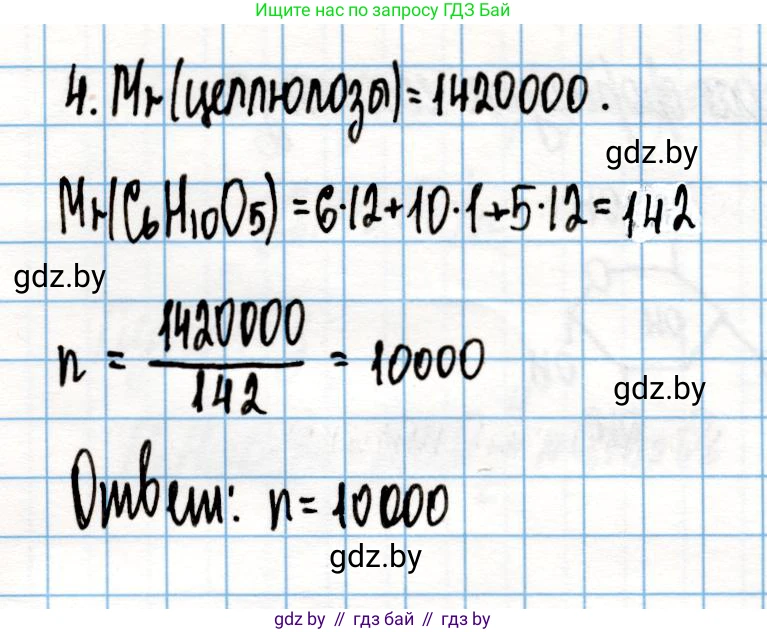 Ищите нас по запросу ГДЗ Бай
4. Mr(целлюлозы)=1420000.
gdz.by
Mr(C₆H₁₀O₅)=6·12+10·1+5·12=142
gdz.by
n = 1420000/142 = 10000
gdz.by
Ответ: n=10000
gdz.by
gdz.by // гдз бай // gdz by